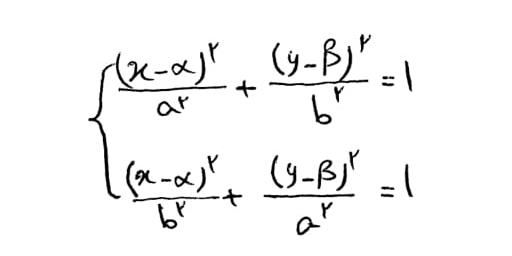 (x-α)^۲/a^۲ + (y-β)^۲/b^۲ = 1
(x-α)^۲/b^۲ + (y-β)^۲/a^۲ = 1